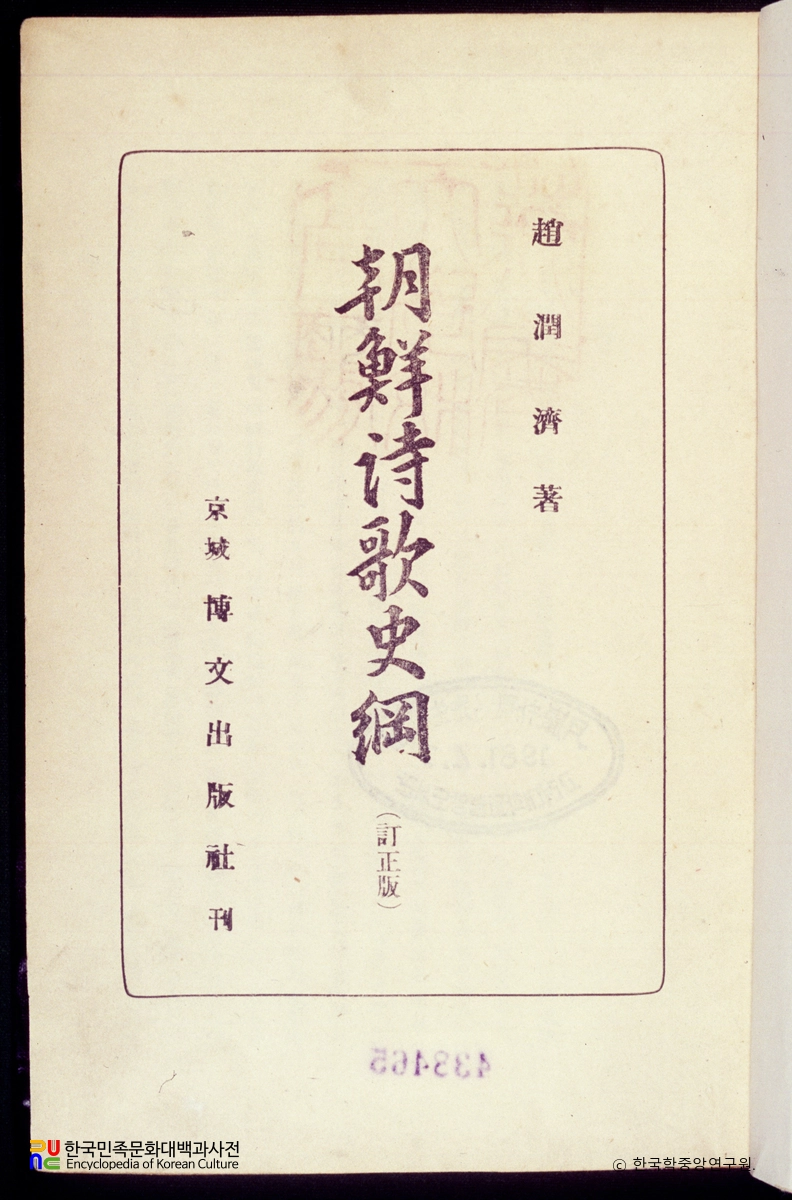 趙潤濟著
朝鮮詩歌史綱
(訂正版)
京城 博文出版社刊
433465
한국민족문화대백과사전
Encyclopedia of Korean Culture
© 한국학중앙연구원.